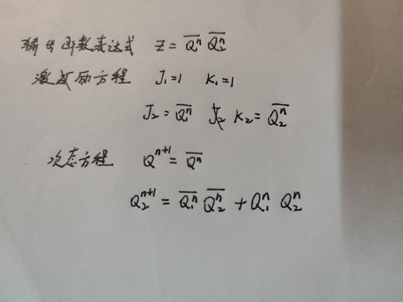 输出函数表达式 Z = \overline{Q_1^n} \overline{Q_2^n}
激励方程 J₁=1 K₁=1
J₂ = \overline{Q_1^n} K₂ = \overline{Q_2^n}
次态方程 Q^{n+1} = \overline{Q^n}
Q_2^{n+1} = \overline{Q_1^n} \overline{Q_2^n} + Q_1^n Q_2^n